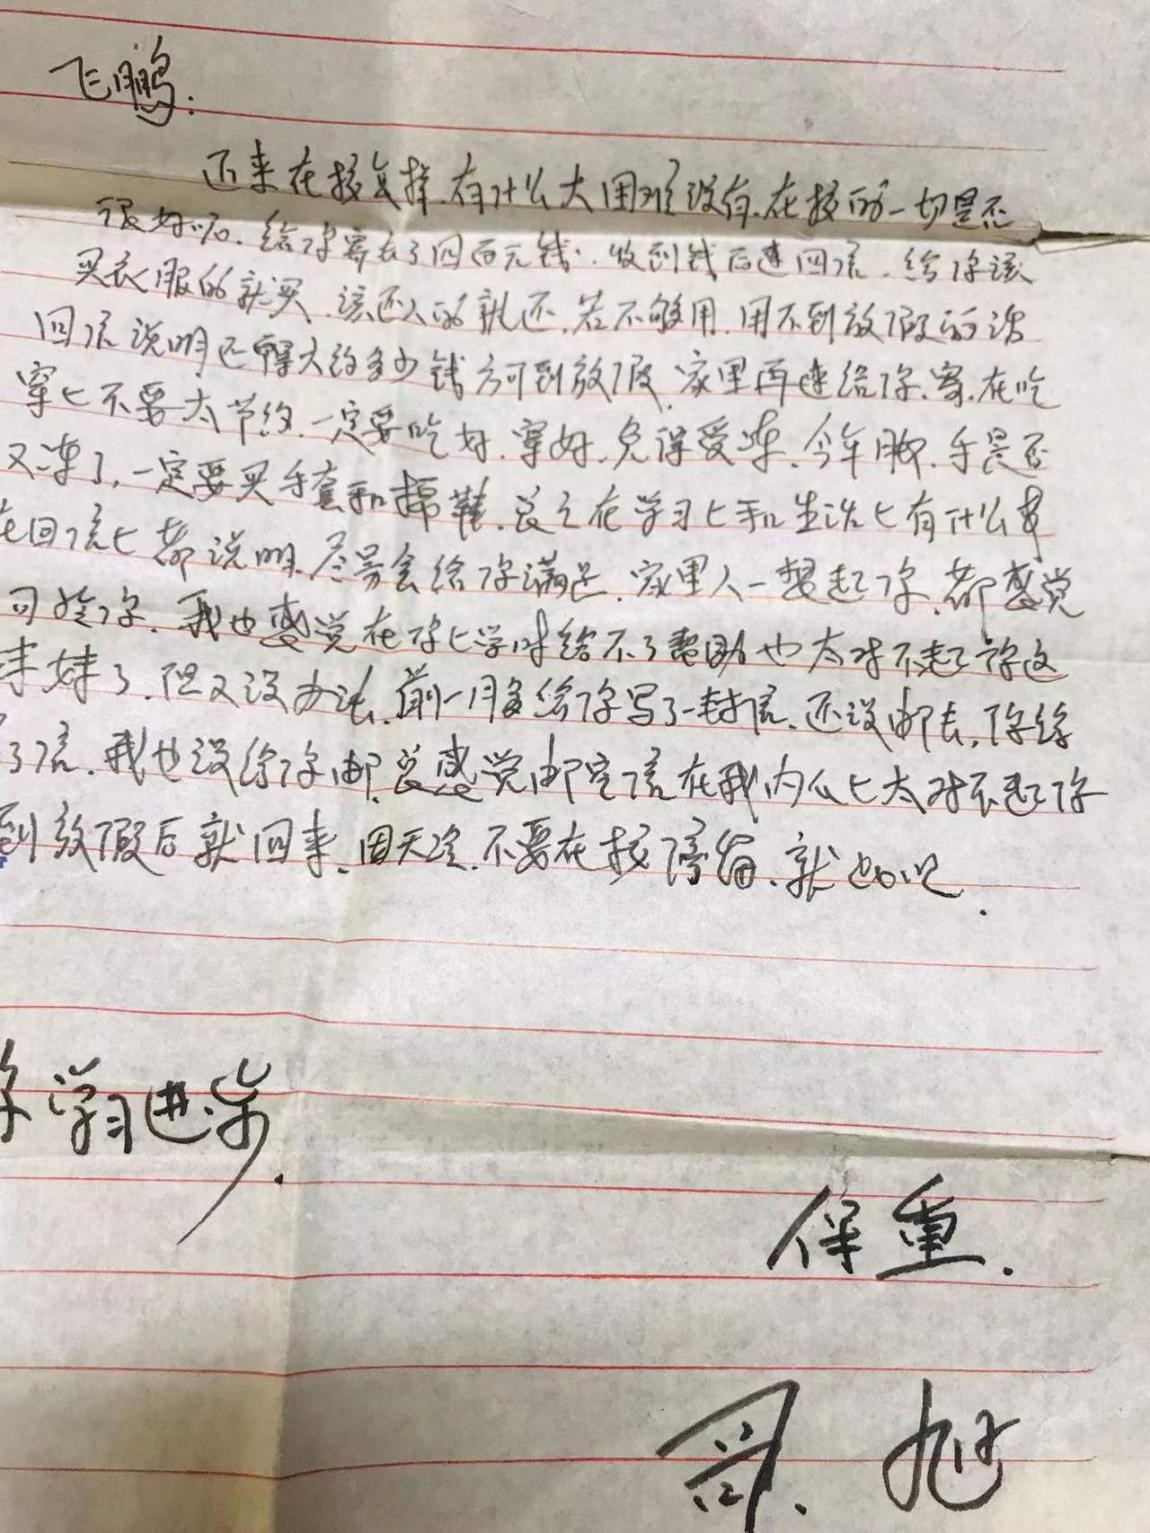 飞鹏.
近来在校怎样.有什么大困难没有.在校的一切是否
很好吧.给你寄去了四百元钱.收到钱后速回信.给你该
买衣服的就买.该还人的就还.若不够用.用不到放假的话
回信说明还需大约多少钱方可到放假.家里再速给你寄.在吃
穿上不要太节约.一定要吃好.穿好.免得受冻.今年脚.手是否
又冻了,一定要买手套和棉鞋.总之在学习上和生活上有什么要
在回信上都说明.尽量会给你满足.家里人一想起你.都感觉
可怜你.我也感觉在你上学时给不了帮助也太对不起你这
妹了.但又没办法.前一月多给你写了一封信.还没邮去,你给
了信.我也没给你邮.总感觉邮空信在我内心上太对不起你
到放假后就回来.因天冷.不要在校停留.就如此.
你学习进步.
保重.
哥.旭